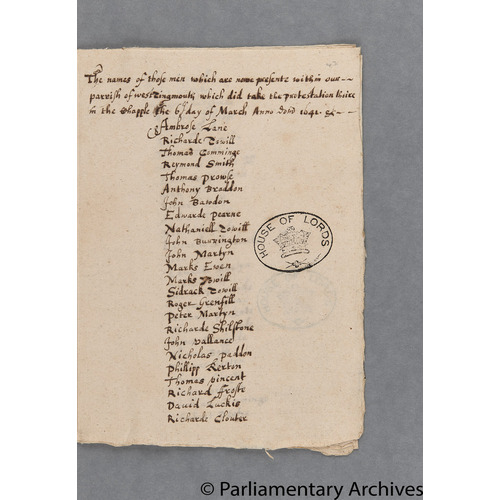 The names of those men which are nowe presente within our
parrish of westteingmouth which did take the protestation there
in the Chapple the 6th day of March Anno Dom 1641. &c
Ambrose Lane
Richarde Towill
Thomas Comminge
Reymond Smith
Thomas Prowse
Anthony Braddon
John Batodon
Edwarde Pearne
Nathaniell Towill
John Burrington
John Martyn
Marks Ewen
Marks Towill
Sidrack Towill
Roger Grenfill
Peter Martyn
Richarde Shilstone
John Vallance
Nicholas Paddon
Phillipp Kerton
Thomas Vincent
Richard ffroste
David Luckis
Richarde Clouter
HOUSE OF LORDS
© Parliamentary Archives